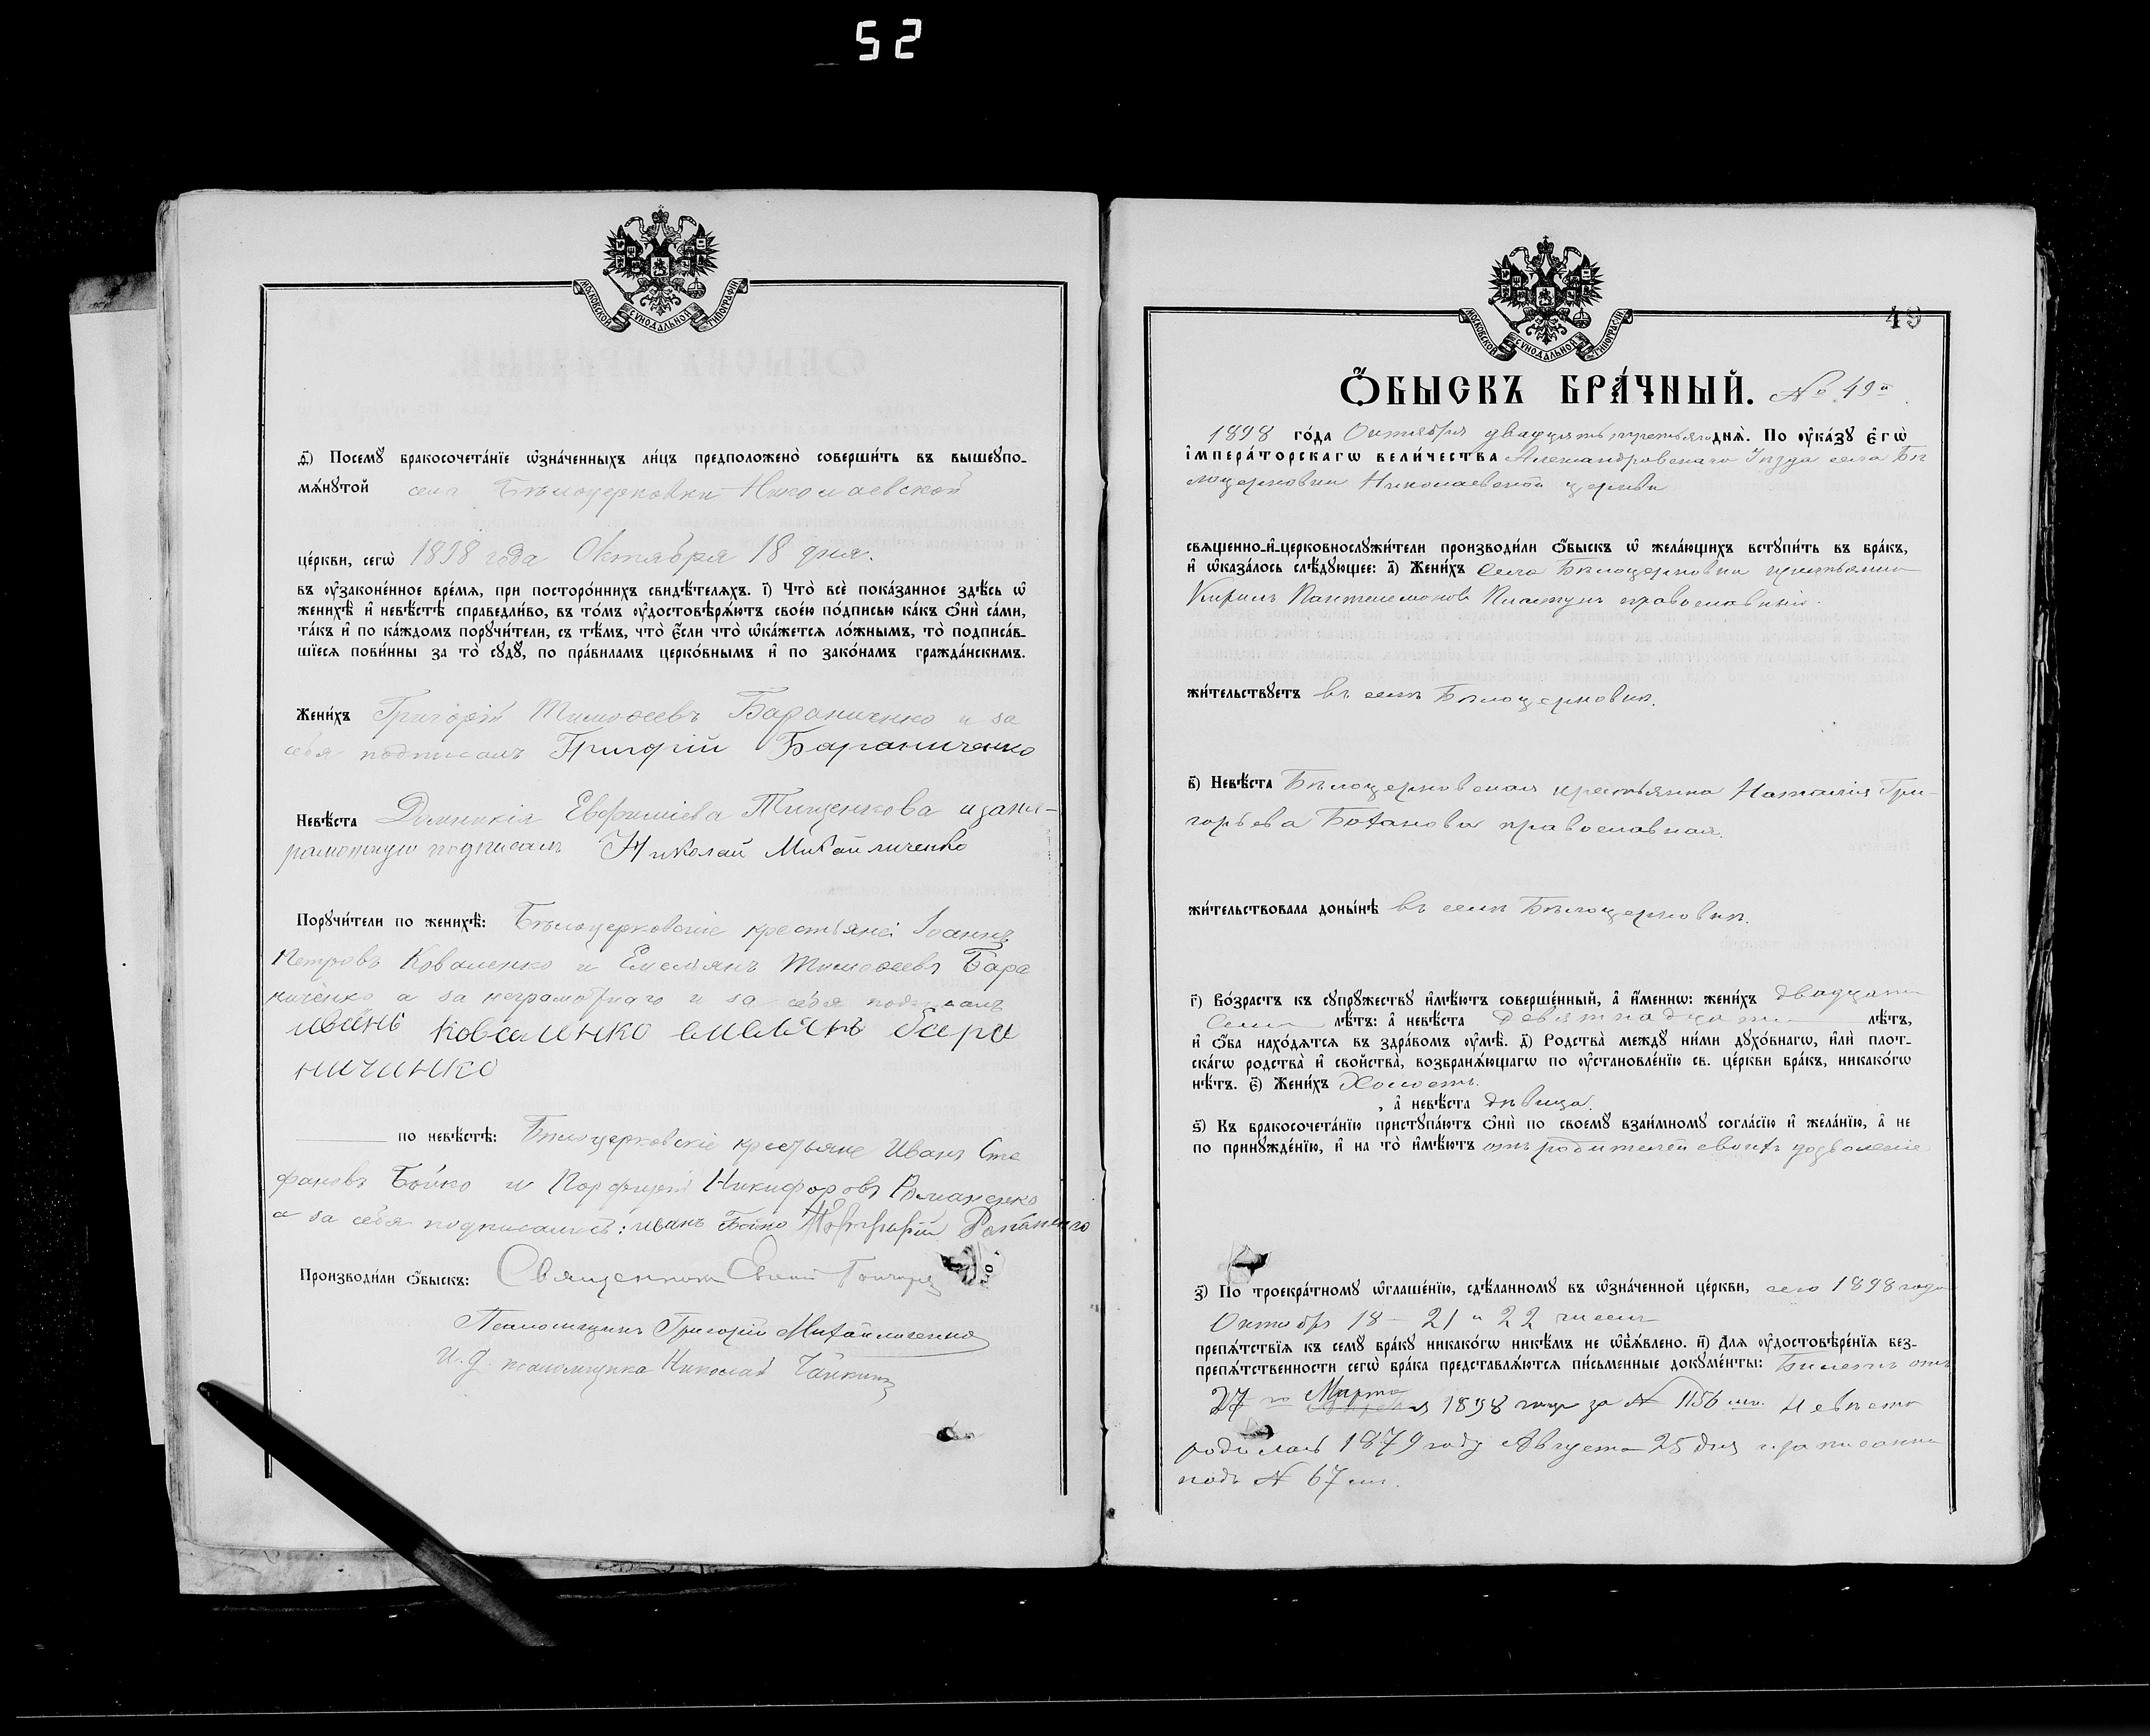 52
МОСКОВСКОЙ СУНОДАЛЬНОЙ ТИПОГРАФІИ
ѳ҃) Посемꙋ бракосочета́нїе ѡ҆зна́ченныхъ ли́цъ предположено̀ соверши́ть въ вышеꙋпо-
мѧ́нꙋтой села Бѣлоцерковки Николаевской
це́ркви, сегѡ̀ 1898 года Октября 18 дня.
въ ᲂу҆зако́ненное вре́мѧ, при посторо́ннихъ свидѣ́телѧхъ. і҃) Что̀ всѐ пока́занное здѣ́сь ѡ҆
женихѣ̀ и҆ невѣ́стѣ справедли́во, въ то́мъ ᲂу҆достовѣрѧ́ютъ свое́ю по́дписью ка́къ ѻ҆нѝ са́ми,
та́къ и҆ по ка́ждомъ порꙋчи́тели, съ тѣ́мъ, что̀ є҆́сли что̀ ѡ҆ка́жетсѧ ло́жнымъ, то̀ подписа́в-
шїесѧ пови́нны за то̀ сꙋдꙋ̀, по пра́виламъ церко́внымъ и҆ по зако́намъ гражда́нскимъ.
Жени́хъ Григорій Тимофеевъ Бараниченко и за
себя подписалъ Григорій Бараниченко
Невѣ́ста Домникія Евфиміева Тищенкова а за не-
грамотную подписалъ Николай Михайличенко
Порꙋчи́тели по женихѣ̀: Бѣлоцерковскіе крестьяне: Іоаннъ
Петровъ Коваленко и Емельянъ Тимофеевъ Бара
ниченко а за неграмотнаго и за себя подписалъ
иванъ коваленко емелянъ бара
ничинко
по невѣ́стѣ: Бѣлоцерковскіе крестьяне Иванъ Сте
фановъ Бойко и Порфирій Никифоровъ Романенко
а за себя подписались: иванъ Бойко Порфирій Романенко
Производи́ли ѻ҆́быскъ: Священникъ
Псаломщикъ Григорій Михайличенко
И. д. псаломщика Николай
МОСКОВСКОЙ СУНОДАЛЬНОЙ ТИПОГРАФІИ
49
Ѻ҆́БЫСКЪ БРА́ЧНЫЙ. № 49й
1898 го́да Октября двадцать третьяго днѧ̀. По ᲂу҆ка́зꙋ є҆гѡ̀
і҆мпера́торскагѡ вели́чества Александровскаго Уѣзда села Бѣ
лоцерковки Николаевской церкви
свѧще́нно-и҆-церковнослꙋжи́тели производи́ли ѻ҆́быскъ ѡ҆ жела́ющихъ встꙋпи́ть въ бра́къ,
и҆ ѡ҆каза́лось слѣ́дꙋющее: а҃) Жени́хъ Села Бѣлоцерковки крестьянинъ
Кирилъ Пантелемоновъ Пластунъ православный.
жи́тельствꙋетъ въ селѣ Бѣлоцерковкѣ.
в҃) Невѣ́ста Бѣлоцерковская крестьянка Наталія Гри-
горьева Боханова православная.
жи́тельствовала доны́нѣ въ селѣ Бѣлоцерковкѣ.
г҃) Во́зрастъ къ сꙋпрꙋ́жествꙋ и҆мѣ́ютъ соверше́нный, а҆ и҆́меннѡ: жени́хъ двадцати
семи лѣ́тъ: а҆ невѣ́ста девятнадцати лѣ́тъ,
и҆ ѻ҆́ба нахо́дѧтсѧ въ здра́вомъ ᲂу҆мѣ̀. д҃) Родства̀ междꙋ ни́ми дꙋхо́внагѡ, и҆лѝ плот-
ска́гѡ родства̀ и҆ сво́йства, возбранѧ́ющагѡ по ᲂу҆становле́нїю св. це́ркви бра́къ, никако́гѡ
нѣ́тъ. є҃) Жени́хъ Холостъ.
, а҆ невѣ́ста дѣвица.
ѕ҃) Къ бракосочета́нїю пристꙋпа́ютъ ѻ҆нѝ по своемꙋ̀ взаи́мномꙋ согла́сїю и҆ жела́нїю, а҆ не
по принꙋжде́нїю, и҆ на то̀ и҆мѣ́ютъ отъ родителей своихъ дозволеніе
з҃) По троекра́тномꙋ ѡ҆глаше́нїю, сдѣ́ланномꙋ въ ѡ҆зна́ченной це́ркви, сего 1898 года
Октября 18 – 21 и 22 числъ
препѧ́тствїѧ къ семꙋ̀ бра́кꙋ никако́гѡ никѣ́мъ не ѡ҆б̾ѧ́влено. и҃) Длѧ ᲂу҆достовѣре́нїѧ без-
препѧ́тственности сегѡ̀ бра́ка представлѧ́ютсѧ пи́сьменные докꙋме́нты: Билетъ отъ
27 го Марта 1898 года за № 1156 мъ. Невѣста
родилась 1879 году Августа 25 дня и записана
подъ № 67 мъ.